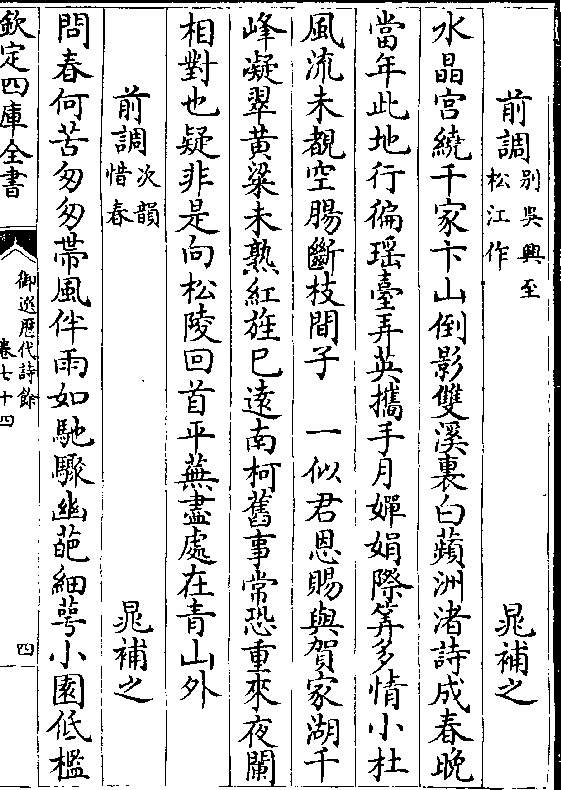 前調別吳興至松江作 晁補之
水晶宫繞千家卞山倒影雙溪裏白蘋洲渚詩成春晚
當年此地行徧瑶臺弄英攜手月嬋娟際算多情小杜
風流未覩空腸斷枝間子 一似君恩賜與賀家湖千
峰凝翠黄粱未熟紅旌已遠南柯舊事常恐重來夜闌
相對也疑非是向松陵回首平蕪盡處在青山外
前調次韻惜春 晁補之
問春何苦匆匆帶風伴雨如馳驟幽葩細萼小園低檻
欽定四庫全書
御選歷代詩餘
卷七十四
四